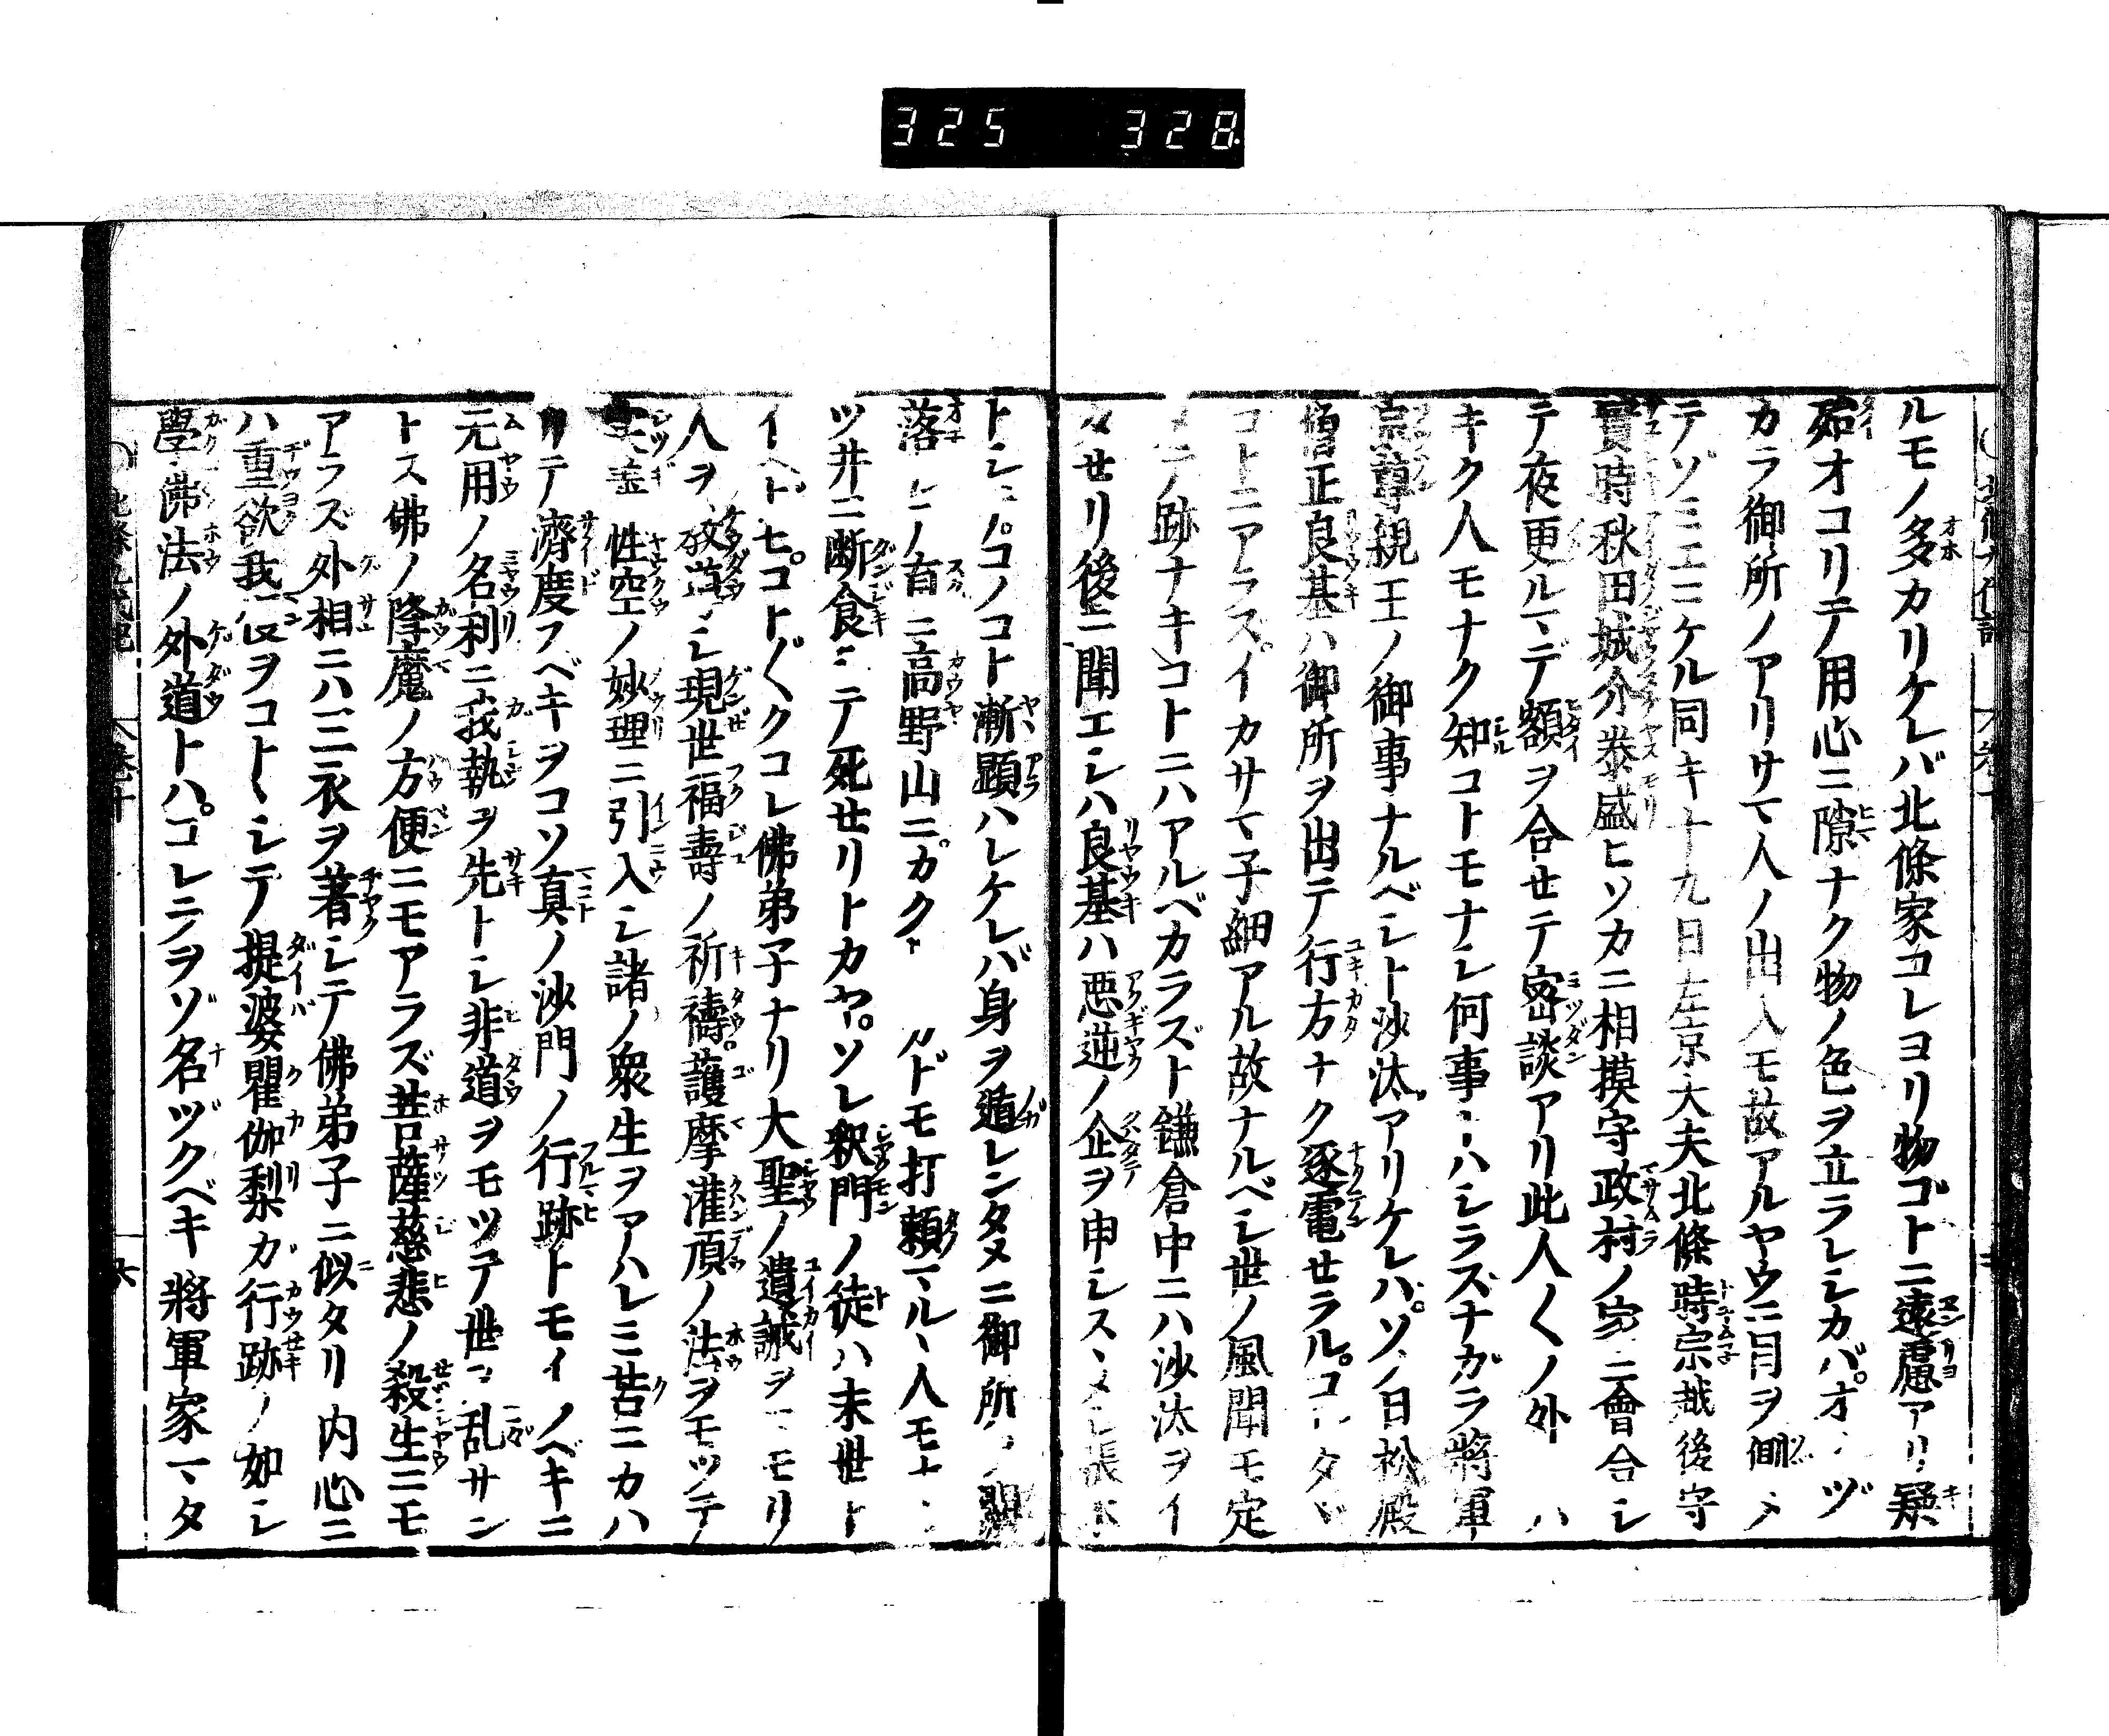 325 328
ルモノ多カリケレバ北條家コレヨリ物ゴトニ遠慮アリ疑
殆オコリテ用心ニ隙ナク物ノ色ヲ立ラレシカバオヅ
カラ御所ノアリサマ人ノ出入モ故アルヤウニ目ヲ
テゾミエニケル同キ十九日左京大夫北條時宗越後守
實時秋田城介泰盛ヒソカニ相摸守政村ノ家ニ會合シ
テ夜更ルマデ額ヲ合せテ密談アリ此人〱ノ外ハ
キク人モナク知コトモナシ何事トハシラズナガラ將軍
宗尊親王ノ御事ナルベシト沙汰アリケレバソノ日松殿
僧正良基ハ御所ヲ出テ行方ナク逐電せラルコレタヾ
コトニアラズイカサマ子細アル故ナルベシ世ノ風聞モ定
メテ跡ナキコトニハアルベカラズト鎌倉中ニハ沙汰ヲイ
タせリ後ニ聞エシハ良基ハ悪逆ノ企ヲ申シスヽメシ張本
トシテコノコト漸顕ハレケレバ身ヲ遁レンタメニ御所ヲ
落シノ高野山ニカクドモ打頼マルヽ人モナ
ツ井ニ断食シテ死せリトカヤソレ釈門ノ徒ハ末世ト
イヘトモコト〲クコレ佛弟子ナリ大聖ノ遺誡ヲマモリ
人ヲ教導シ現世福壽ノ祈禱護摩灌頂ノ法ヲモツテ
性空ノ妙理ニ引入シ諸ノ衆生ヲアハレミ苦ニカハ
リテ濟度スベキヲコソ真ノ沙門ノ行跡トモイフベキニ
元用ノ名利ニ我執ヲ先トシ非道ヲモツテ世ヲ乱サン
トス佛ノ降魔ノ方便ニモアラズ菩薩慈悲ノ殺生ニモ
アラズ外相ニハ三衣ヲ著シテ佛弟子ニ似タリ内心ニ
ハ重欲我ヲコトヽシテ提婆瞿伽梨ガ行跡ノ如シ
學佛法ノ外道トハコレラヲゾ名ヅクベキ將軍家マタ